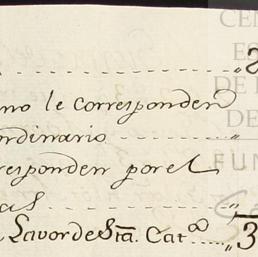 2
no le corresponden
ordinario
responden por el
Lavor de Sta. Catª
3
CEN
ES
DE
DE
FUN